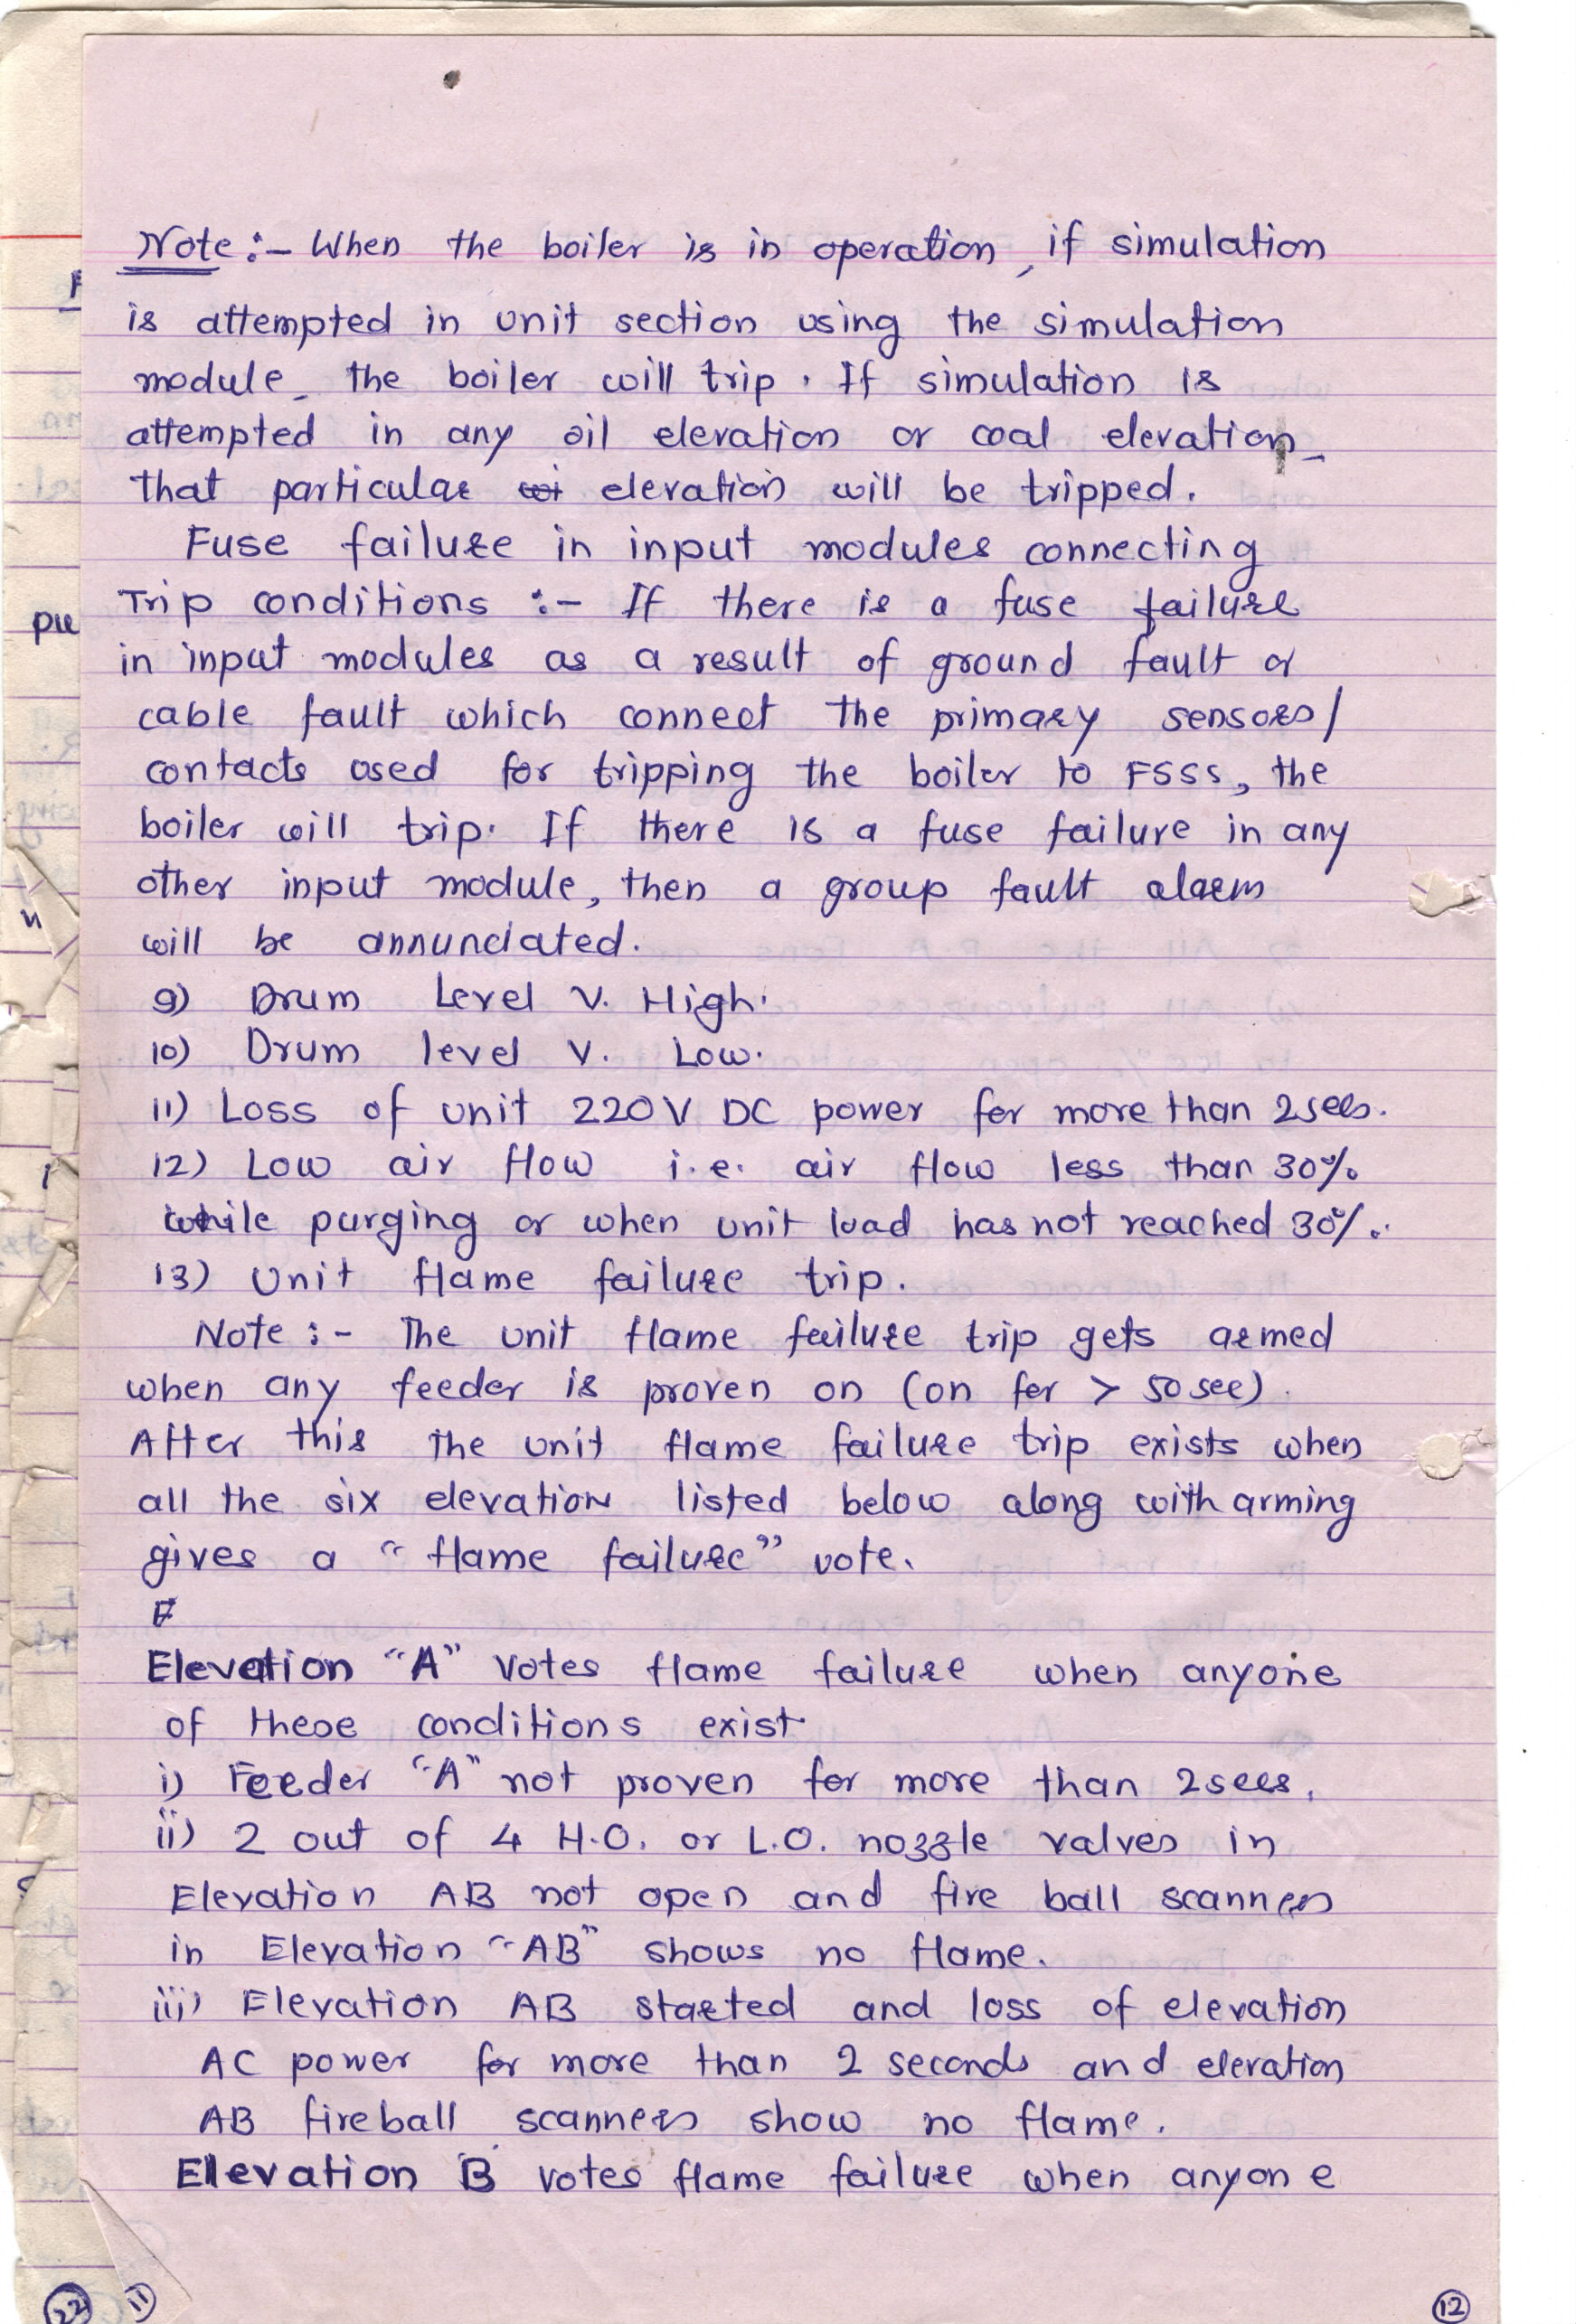 Note :- When the boiler is in operation, if simulation
is attempted in unit section using the simulation
module, the boiler will trip. If simulation is
attempted in any oil elevation or coal elevation,
that particular elevation will be tripped.
Fuse failure in input modules connecting
Trip conditions :- If there is a fuse failure
in input modules as a result of ground fault or
cable fault which connect the primary sensors/
contacts used for tripping the boiler to FSSS, the
boiler will trip. If there is a fuse failure in any
other input module, then a group fault alarm
will be annunciated.
9) Drum Level V. High.
10) Drum level V. Low.
11) Loss of unit 220V DC power for more than 2secs.
12) Low air flow i.e. air flow less than 30%
while purging or when unit load has not reached 30%.
13) Unit flame failure trip.
Note :- The unit flame failure trip gets armed
when any feeder is proven on (on for > 50 sec).
After this the unit flame failure trip exists when
all the six elevation listed below along with arming
gives a "flame failure" vote.
Elevation "A" votes flame failure when anyone
of these conditions exist
i) Feeder "A" not proven for more than 2secs.
ii) 2 out of 4 H.O. or L.O. nozzle valves in
Elevation AB not open and fire ball scanners
in Elevation "AB" shows no flame.
iii) Elevation AB started and loss of elevation
AC power for more than 2 seconds and elevation
AB fireball scanners show no flame.
Elevation B votes flame failure when anyone
22 11 12